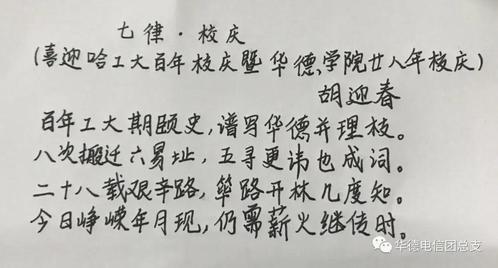 七律·校庆
(喜迎哈工大百年校庆暨华德学院廿八年校庆)
胡迎春
百年工大期颐史,谱写华德并理枝。
八次搬迁六易址,五寻更讳也成词。
二十八载艰辛路,筚路开林几度知。
今日峥嵘年月现,仍需薪火继传时。
华德电信团总支